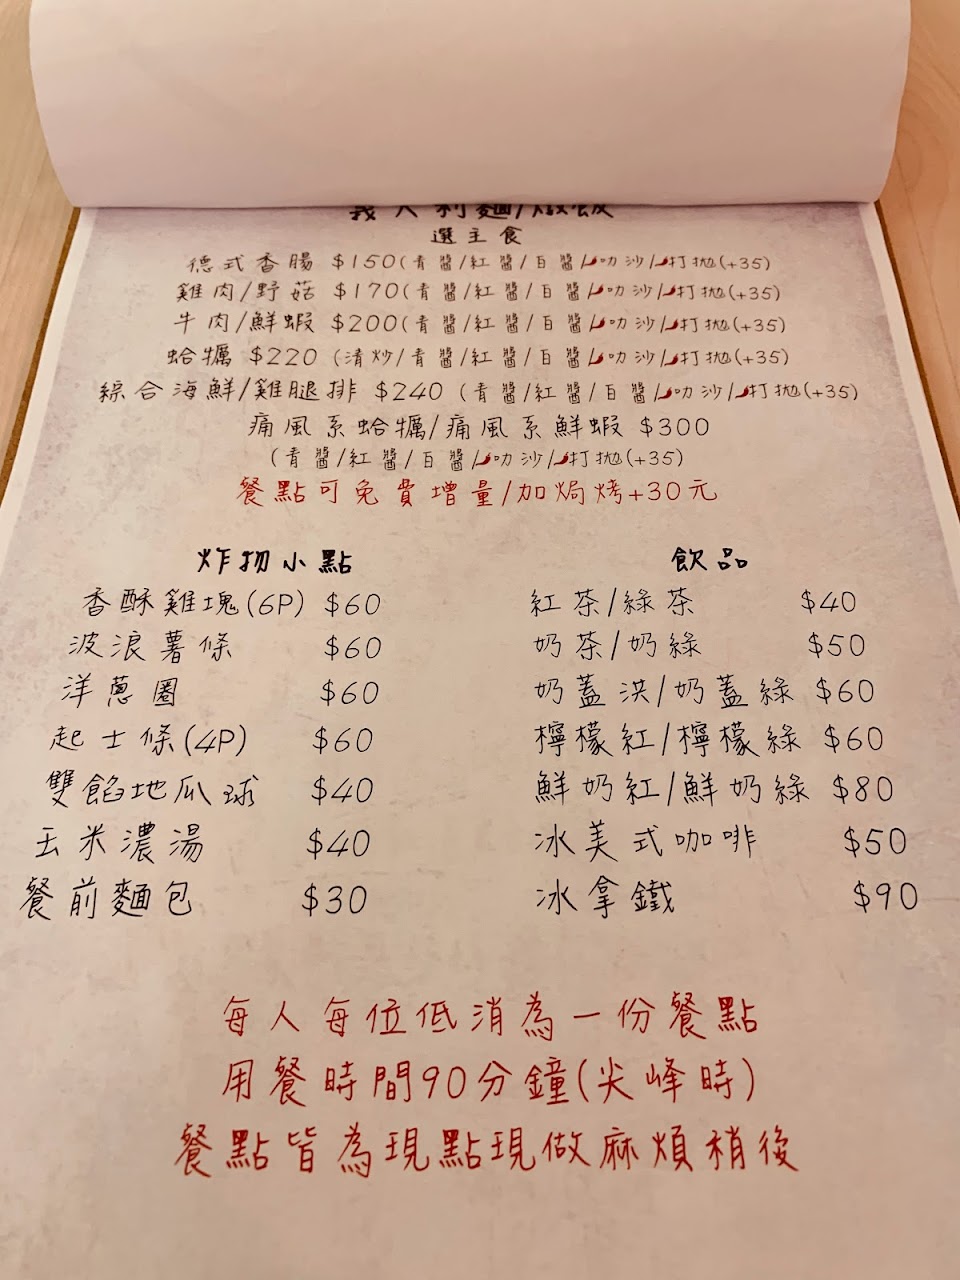 義大利麵/燉飯
選主食
德式香腸 $150(青醬/紅醬/白醬/叻沙/打拋(+35)
雞肉/野菇 $170(青醬/紅醬/白醬/叻沙/打拋(+35)
牛肉/鮮蝦 $200(青醬/紅醬/白醬/叻沙/打拋(+35)
蛤蠣 $220 (清炒/青醬/紅醬/白醬/叻沙/打拋(+35)
綜合海鮮/雞腿排 $240 (青醬/紅醬/白醬/叻沙/打拋(+35)
痛風系蛤蠣/痛風系鮮蝦 $300
(青醬/紅醬/白醬/叻沙/打拋(+35)
餐點可免費增量/加焗烤+30元
炸物小點
香酥雞塊(6P) $60
波浪薯條 $60
洋蔥圈 $60
起士條(4P) $60
雙餡地瓜球 $40
玉米濃湯 $40
餐前麵包 $30
飲品
紅茶/綠茶 $40
奶茶/奶綠 $50
奶蓋洪/奶蓋綠 $60
檸檬紅/檸檬綠 $60
鮮奶紅/鮮奶綠 $80
冰美式咖啡 $50
冰拿鐵 $90
每人每位低消為一份餐點
用餐時間90分鐘(尖峰時)
餐點皆為現點現做麻煩稍後